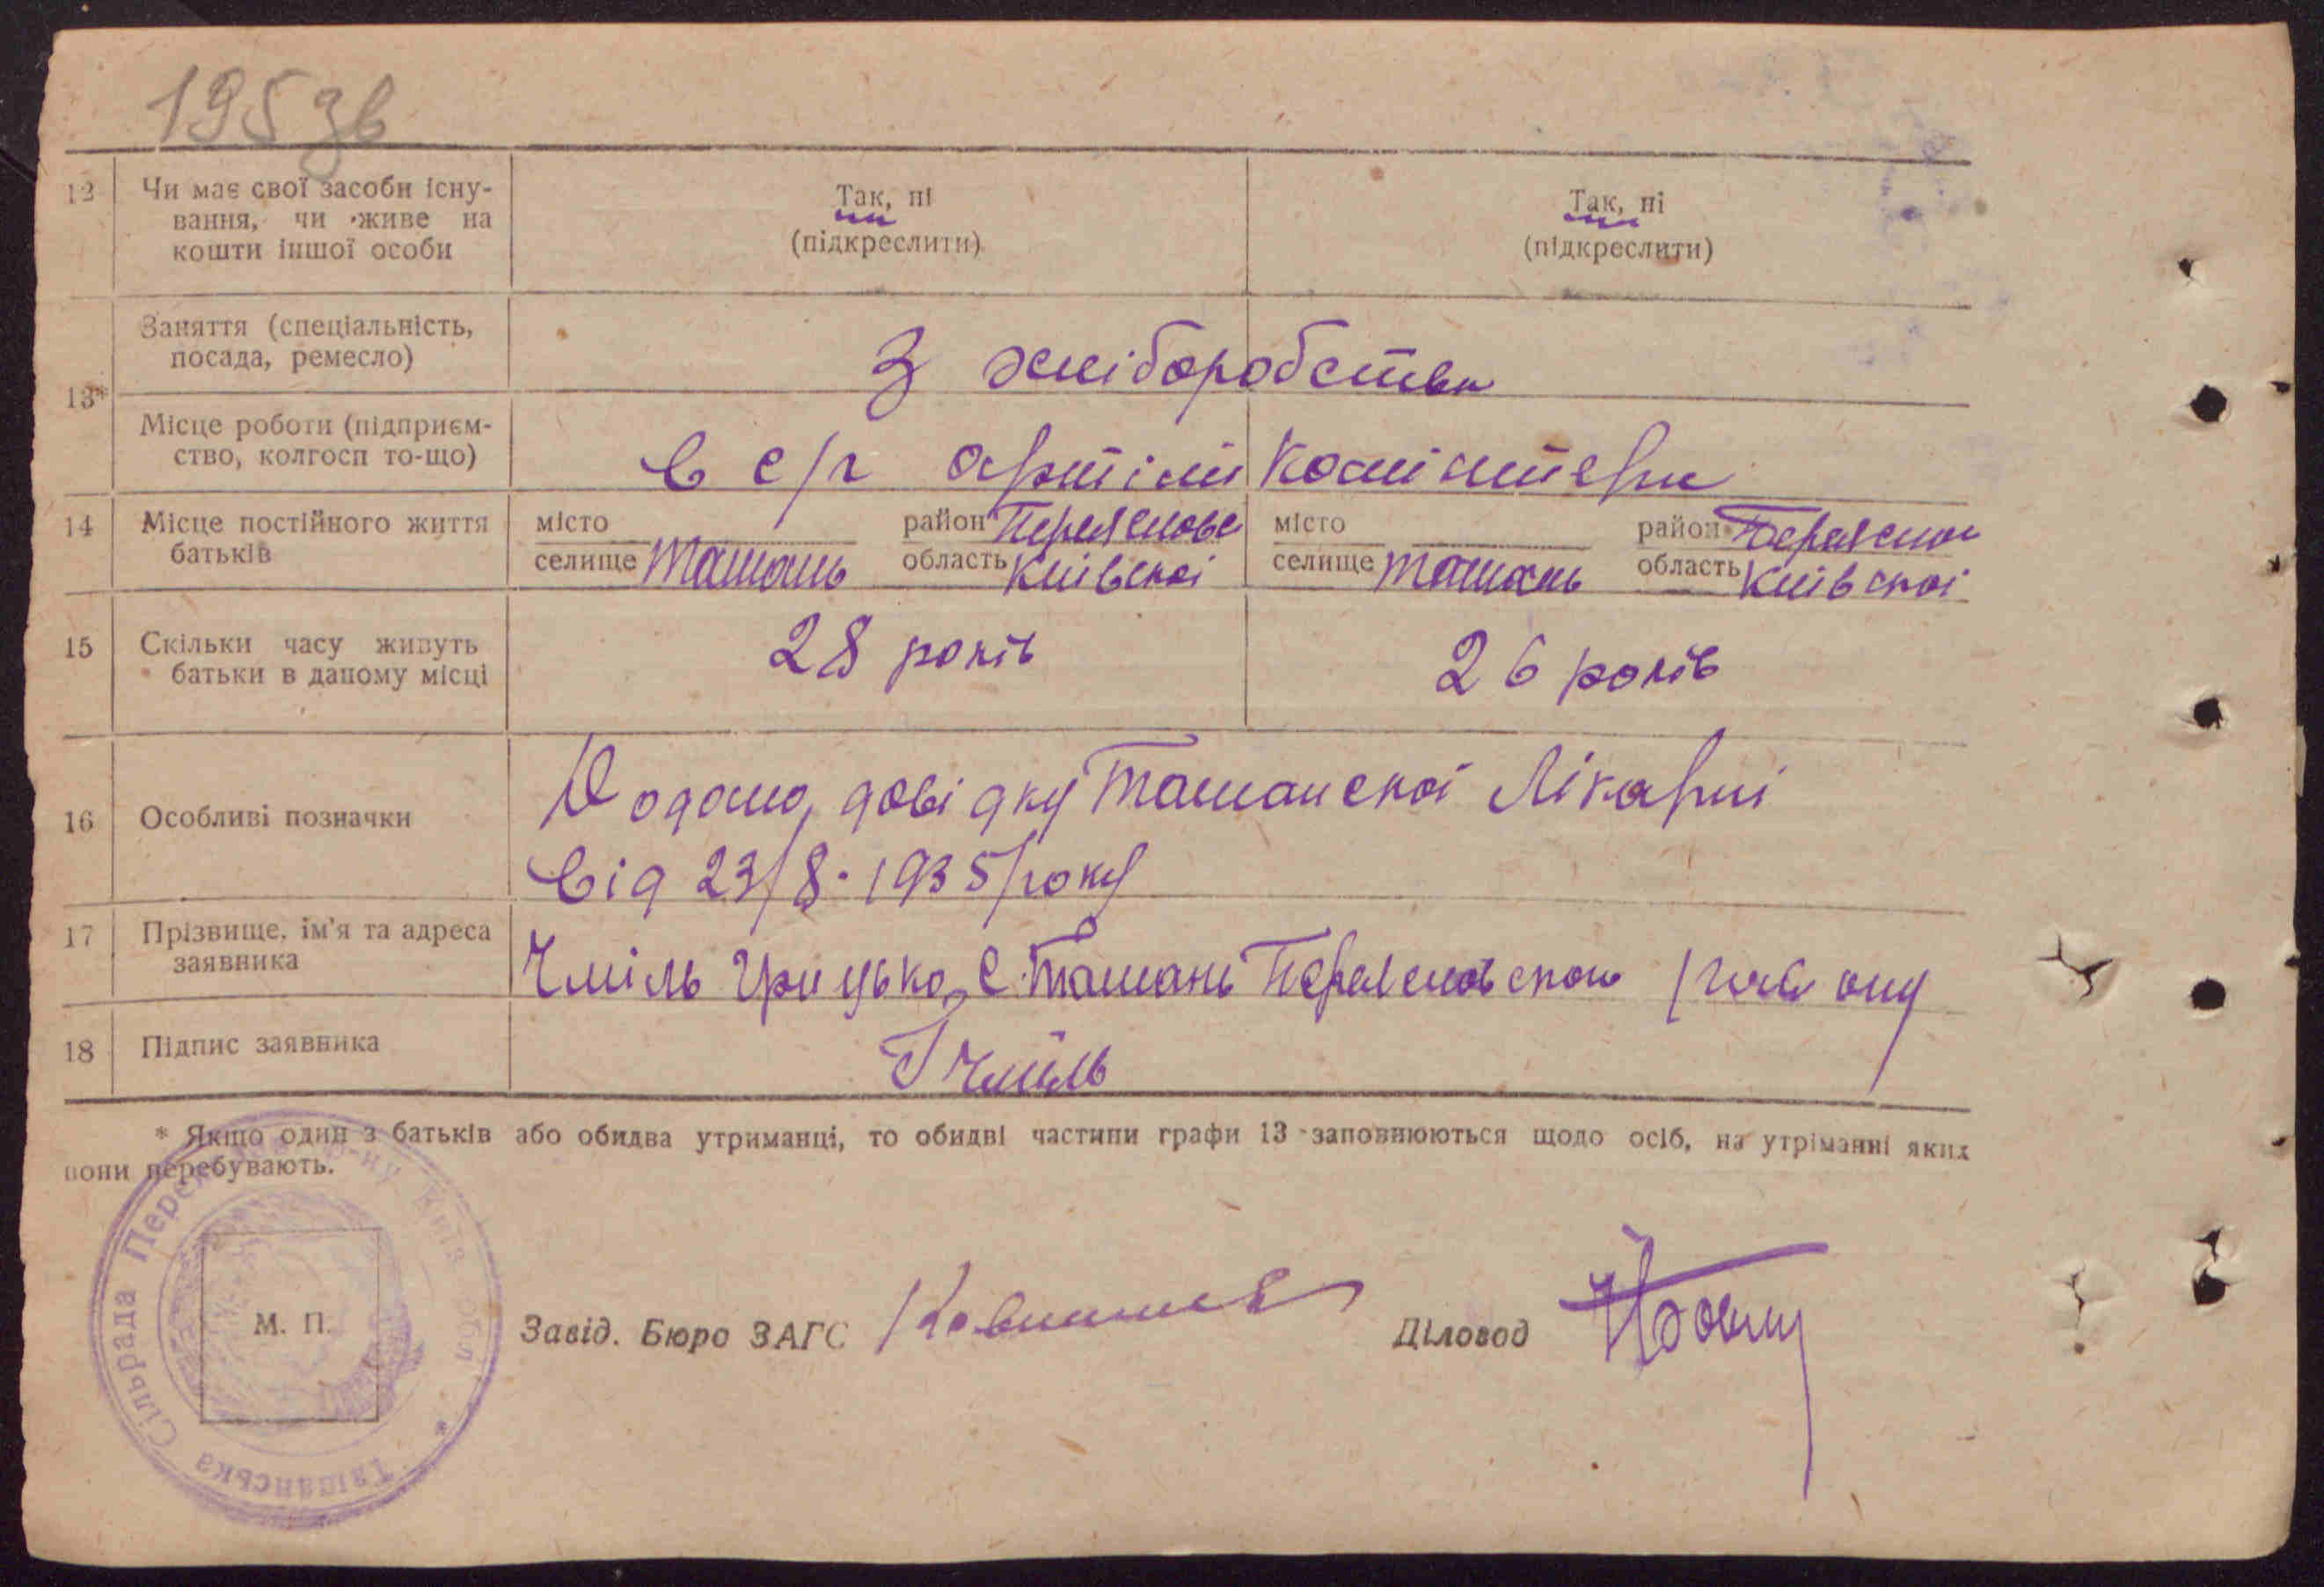 195 зв
12 Чи має свої засоби існу- Так, ні Так, ні
вання, чи живе на (підкреслити) (підкреслити)
кошти іншої особи
Заняття (спеціальність,
посада, ремесло) З хліборобства
13*
Місце роботи (підприєм-
ство, колгосп то-що) в с/г артілі Комінтерн
14 Місце постійного життя місто район Переяслове місто район Переяслов
батьків селище Ташань область Київскої селище Ташань область Київскої
15 Скільки часу живуть 28 років 26 років
батьки в даному місці
Додано довідку Ташанскої Лікарні
16 Особливі позначки
від 23/8. 1935 року
17 Прізвище, ім'я та адреса
заявника Чміль Грицько, с. Ташань Переясловском району
18 Підпис заявника Г Чміль
* Якщо один з батьків або обидва утриманці, то обидві частини графи 13 заповнюються щодо осіб, на утріманні яких
вони перебувають.
Ташанська Сільрада Київ обл
М. П. Завід. Бюро ЗАГС Діловод